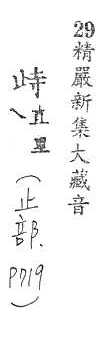 29精嚴新集大藏音
歭直里(止部.P719)